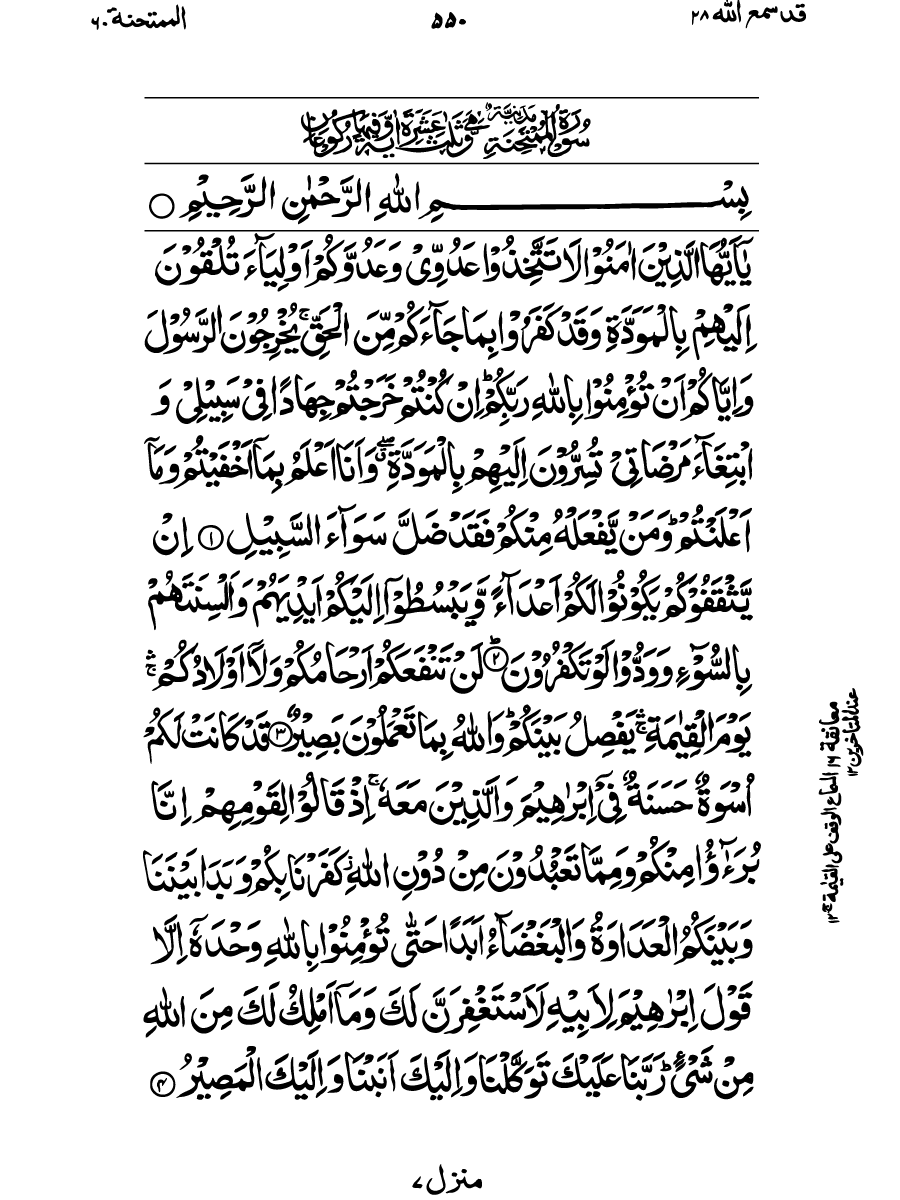 قد سمع الله ٢٨
٥٥٠
الممتحنة ٦٠
سُوْرَةُ الْمُمْتَحِنَةِ مَدَنِيَّةٌ وَّهِيَ ثَلٰثَ عَشْرَةَ اٰيَةً وَّفِيْهَا رُكُوْعَانِ
بِسْمِ اللهِ الرَّحْمٰنِ الرَّحِيْمِ ○
يٰۤاَيُّهَا الَّذِيْنَ اٰمَنُوْا لَا تَتَّخِذُوْا عَدُوِّيْ وَعَدُوَّكُمْ اَوْلِيَآءَ تُلْقُوْنَ
اِلَيْهِمْ بِالْمَوَدَّةِ وَقَدْ كَفَرُوْا بِمَا جَآءَكُمْ مِّنَ الْحَقِّ ۚ يُخْرِجُوْنَ الرَّسُوْلَ
وَاِيَّاكُمْ اَنْ تُؤْمِنُوْا بِاللهِ رَبِّكُمْ ؕ اِنْ كُنْتُمْ خَرَجْتُمْ جِهَادًا فِيْ سَبِيْلِيْ وَ
ابْتِغَآءَ مَرْضَاتِيْ تُسِرُّوْنَ اِلَيْهِمْ بِالْمَوَدَّةِ ۖ وَاَنَا اَعْلَمُ بِمَاۤ اَخْفَيْتُمْ وَمَاۤ
اَعْلَنْتُمْ ؕ وَمَنْ يَّفْعَلْهُ مِنْكُمْ فَقَدْ ضَلَّ سَوَآءَ السَّبِيْلِ ۝۱ اِنْ
يَّثْقَفُوْكُمْ يَكُوْنُوْا لَكُمْ اَعْدَآءً وَّيَبْسُطُوْۤا اِلَيْكُمْ اَيْدِيَهُمْ وَاَلْسِنَتَهُمْ
بِالسُّوْٓءِ وَوَدُّوْا لَوْ تَكْفُرُوْنَ ؕ۝۲ لَنْ تَنْفَعَكُمْ اَرْحَامُكُمْ وَلَاۤ اَوْلَادُكُمْ ۛۚ
يَوْمَ الْقِيٰمَةِ ۛۚ يَفْصِلُ بَيْنَكُمْ ؕ وَاللهُ بِمَا تَعْمَلُوْنَ بَصِيْرٌ ۝۳ قَدْ كَانَتْ لَكُمْ
اُسْوَةٌ حَسَنَةٌ فِيْۤ اِبْرٰهِيْمَ وَالَّذِيْنَ مَعَهٗ ۚ اِذْ قَالُوْا لِقَوْمِهِمْ اِنَّا
بُرَءٰٓؤُا مِنْكُمْ وَمِمَّا تَعْبُدُوْنَ مِنْ دُوْنِ اللهِ ؗ كَفَرْنَا بِكُمْ وَبَدَا بَيْنَنَا
وَبَيْنَكُمُ الْعَدَاوَةُ وَالْبَغْضَآءُ اَبَدًا حَتّٰى تُؤْمِنُوْا بِاللهِ وَحْدَهٗۤ اِلَّا
قَوْلَ اِبْرٰهِيْمَ لِاَبِيْهِ لَاَسْتَغْفِرَنَّ لَكَ وَمَاۤ اَمْلِكُ لَكَ مِنَ اللهِ
مِنْ شَيْءٍ ؕ رَبَّنَا عَلَيْكَ تَوَكَّلْنَا وَاِلَيْكَ اَنَبْنَا وَاِلَيْكَ الْمَصِيْرُ ۝۴
معانقة ١٦
عند المتاخرين ١٢
الوقف على القيٰمة ١٢
منزل ٧